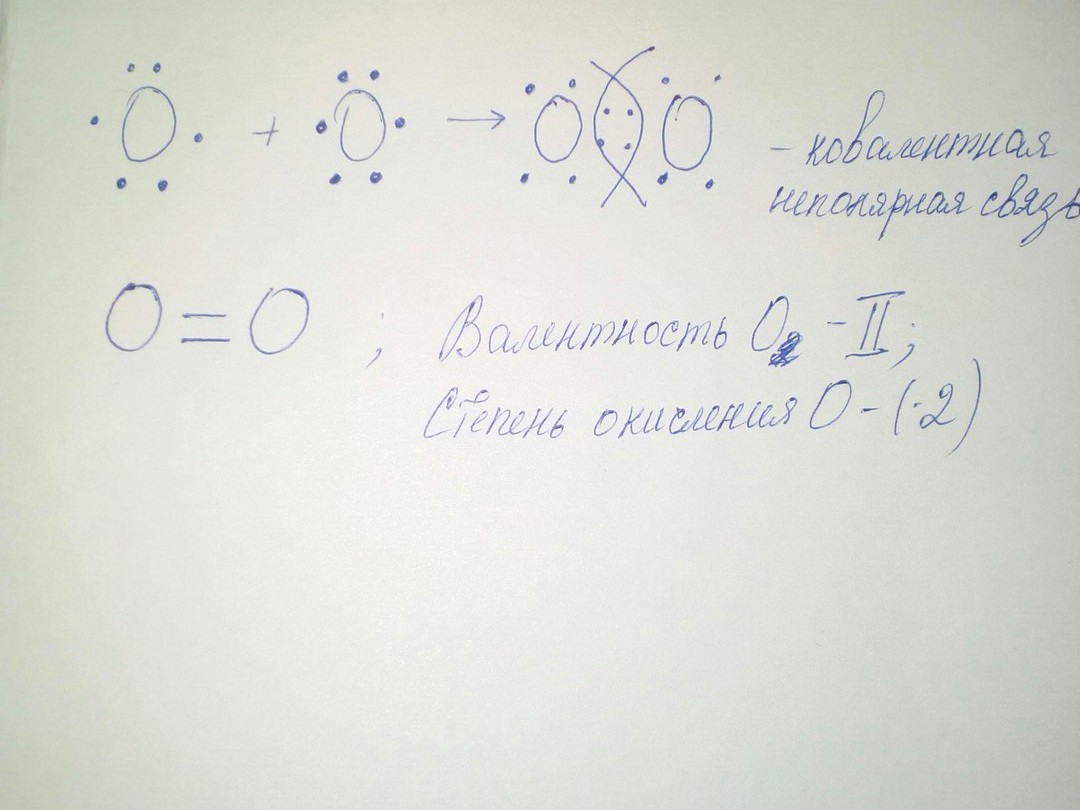 O + O → O O – ковалентная
неполярная связь
O = O ; Валентность O₂ – II;
Степень окисления O – (-2)